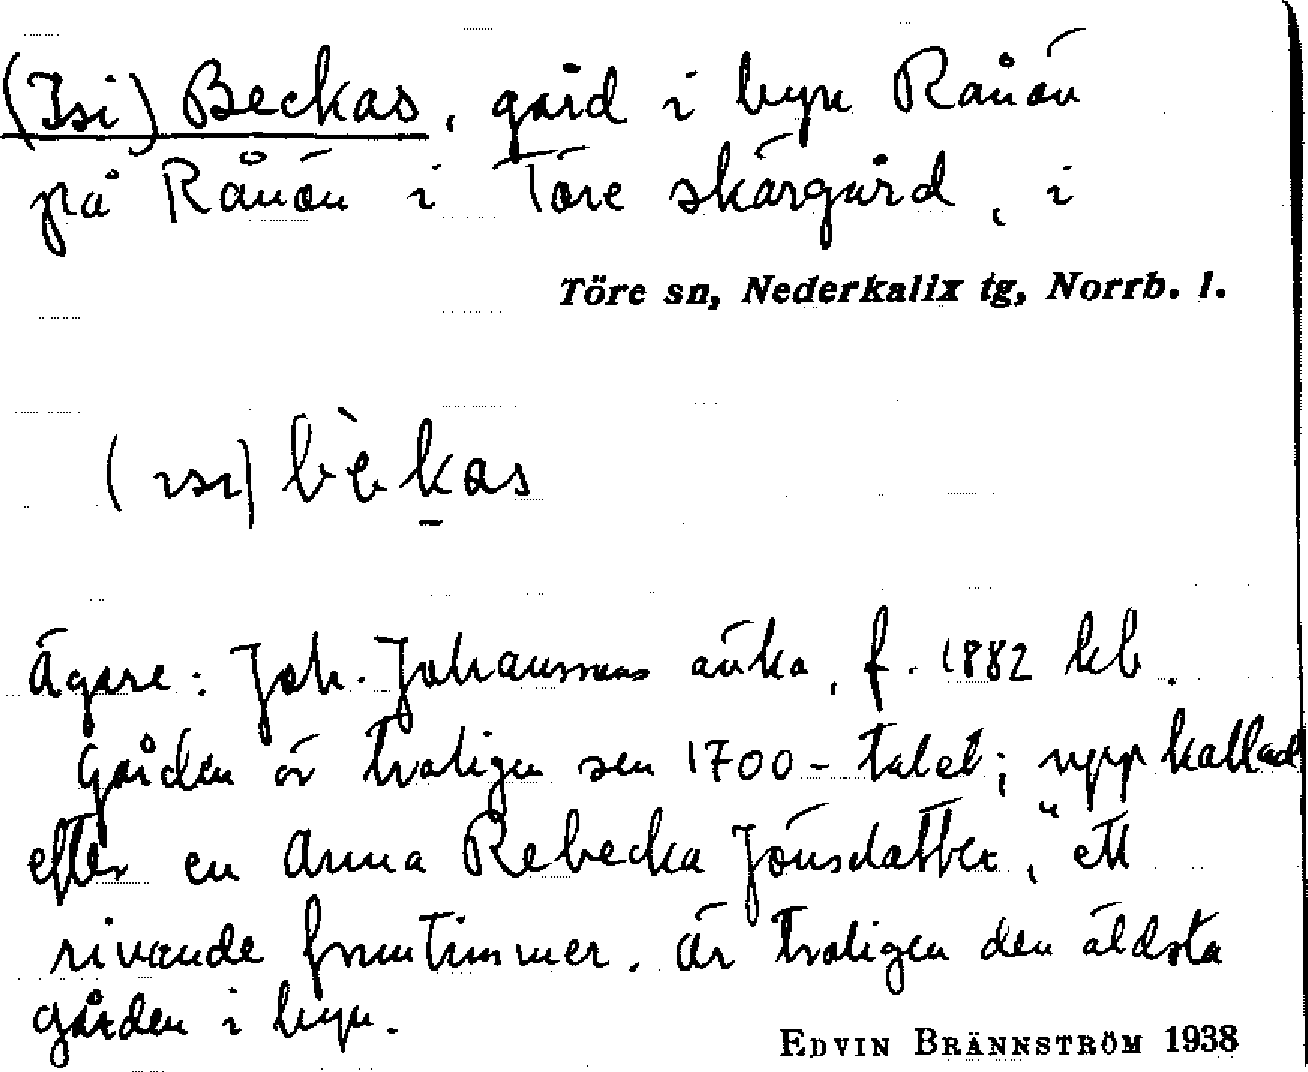 (Isi) Beckas, gård i byn Rånön
på Rånön i Töre skärgård, i
Töre sn, Nederkalix tg, Norrb. l.
(ɪsɪ) bèkas
Ägare: Joh. Johanssons änka, f. 1882 hb.
Gården är troligen sen 1700-talet; uppkallad
efter en Anna Rebecka Jönsdotter, "ett
rivande fruntimmer. Är troligen den äldsta
gården i byn.
EDVIN BRÄNNSTRÖM 1938